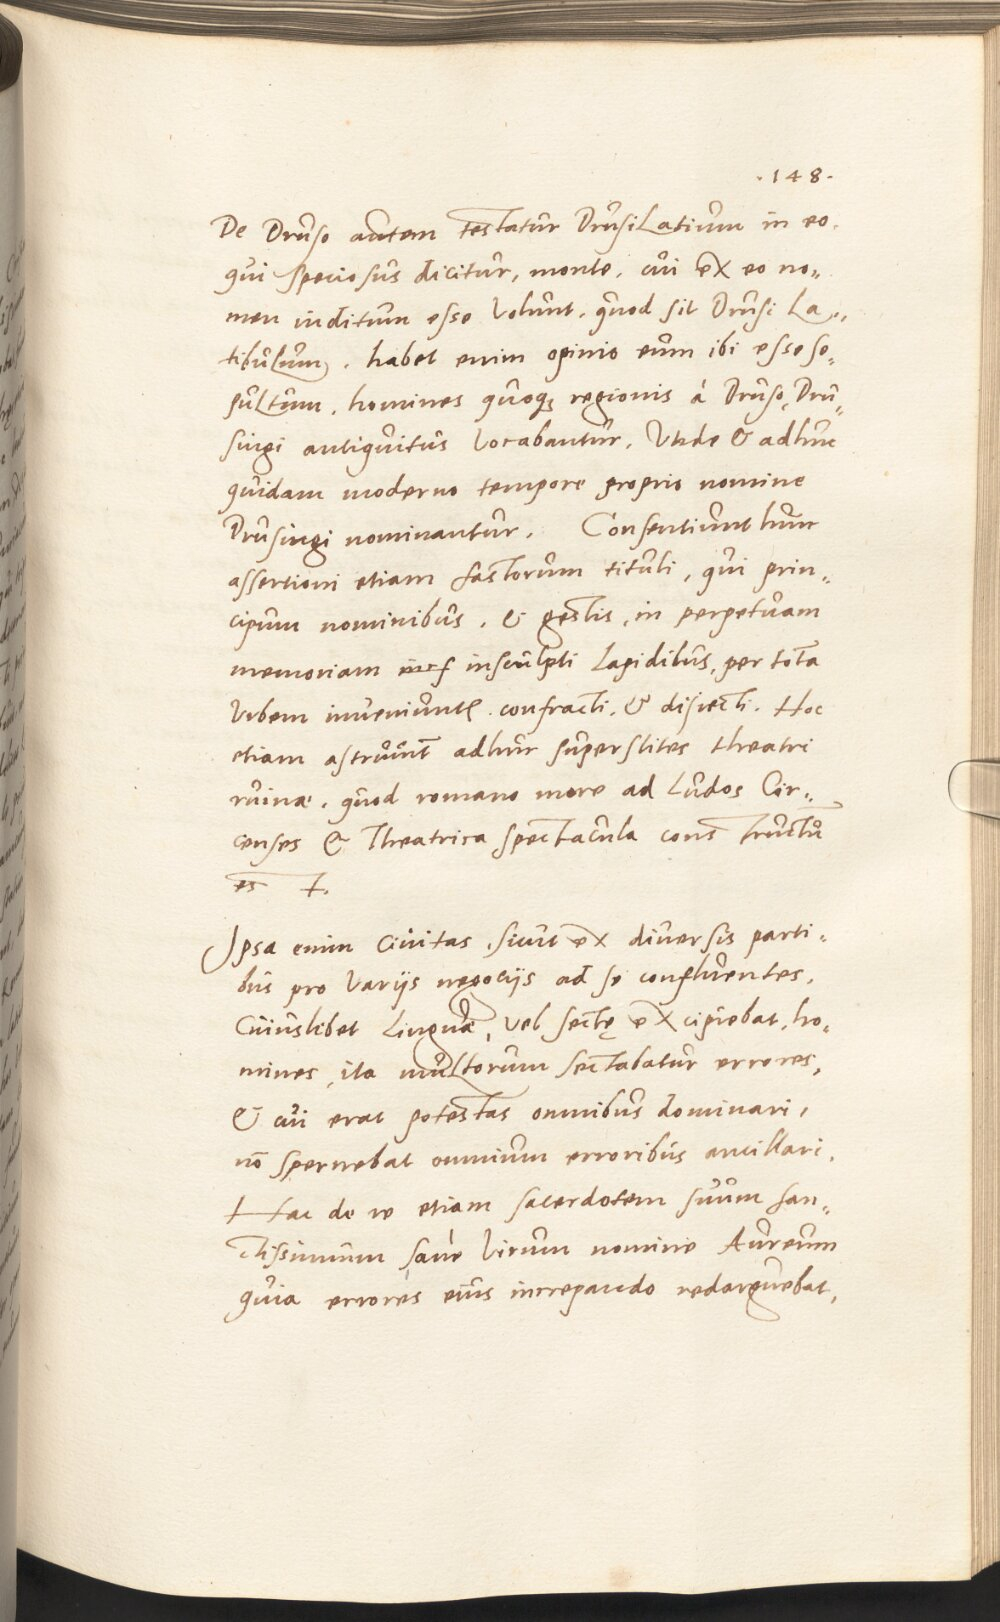 ·148·
De Druso autem testatur DrusiLatium in eo.
qui speciosus dicitur, monte. cui ex eo no„
men inditum esse volunt. quod sit Drusi La„
tibulum. habet enim opinio eum ibi esse se„
pultum. homines quoq; regionis á Druso, Dru„
singi antiquitus vocabantur. Unde & adhuc
quidam moderno tempore proprio nomine
Drusingi nominantur. Consentiunt hunc
assertioni etiam fastorum tituli, qui prin„
cipum nominibus. & gestis, in perpetuam
memoriam insculpti Lapidibus, per totā
Urbem inveniunt. confracti. & disiecti. Hoc
etiam astruunt adhuc superstites theatri
ruinæ. quod romano more ad Ludos Cir„
censes & Theatrica spectacula constructū
est.
Ipsa enim Civitas, sicut ex diversis parti„
bus pro variis negociis ad se confluentes,
Cuiuslibet Linguæ, vel sectę excipiebat, ho„
mines, ita multorum sectabatur errores,
& cui erat potestas omnibus dominari,
nō spernebat omnium erroribus ancillari.
Hac de re etiam sacerdotem suum san„
ctissimum sanè virum nomine Aureum
quia errores eius increpando redarguebat,